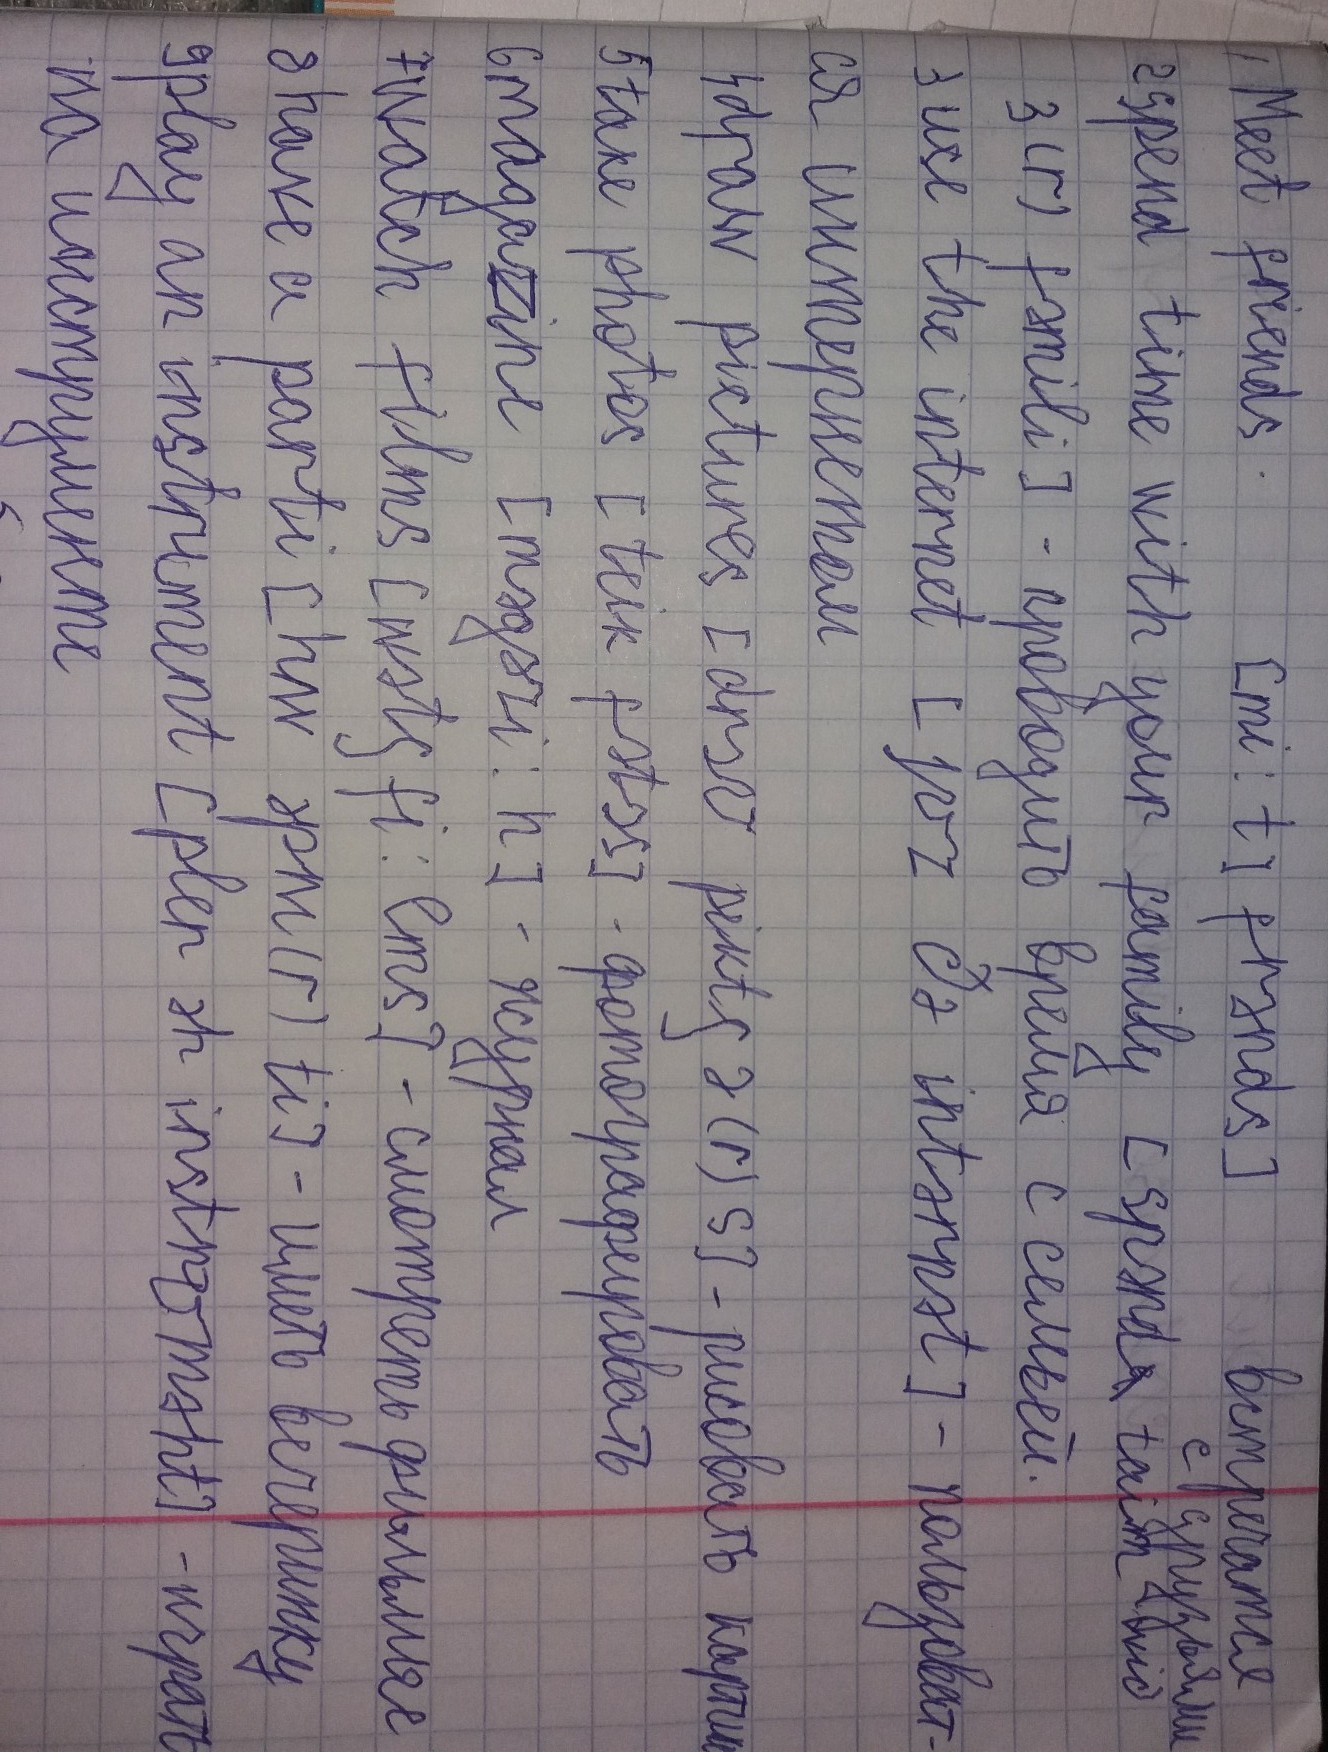 1 Meet friends. [mi:t] frɛnds] встречатся
с друзьями
2 spend time with your family [spɛnd taim wið
з(r) fɛmili] - проводить время с семьей.
3 use the internet [juz ðə intɛrnɛt] - пользоват-
ся интернетом
4 draw pictures [drɔ piktʃə(r)s] - рисовать картин
5 take photos [teik fɔtɔs] - фотографировать
6 magazine [mɛgɛzi:n] - журнал
7 watch films [wɔtʃ fi:lms] - смотреть фильмые
8 have a parti [hɛv ɛpɑ(r)ti] - иметь вечеринку
9 play an instrument [plen ɛn instrɔmɛnt] - играть
на инструменте